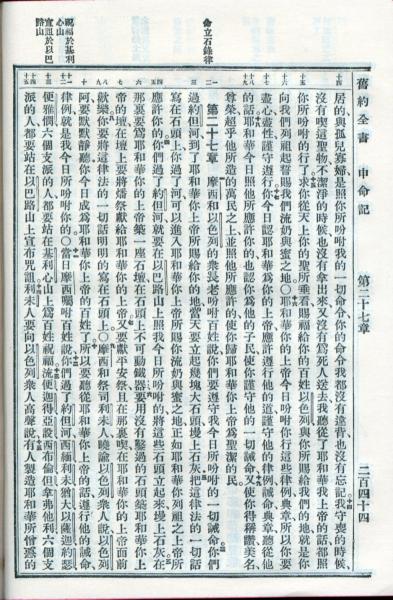 舊約全書 申命記 第二十七章 二百四十四
居的與孤兒寡婦是照你所吩咐我的一切命令你的命令我都沒有違背也沒有忘記我守喪的時候
沒有喫這聖物不潔淨的時候也沒有拿出來又沒有爲死人送去我聽從了耶和華我上帝的話都照
你所吩咐的行了求你從天上你的聖所垂看賜福給你的百姓以色列與你所賜給我們的地就是你
向我們列祖起誓賜我們流奶與蜜之地〇耶和華你的上帝今日吩咐你行這些律例典章所以你要
盡心盡性謹守遵行你今日認耶和華爲你的上帝應許遵行他的道謹守他的律例誡命典章聽從他
的話耶和華今日照他所應許你的也認你爲他的子民使你謹守他的一切誡命又使你得稱讚美名
尊榮超乎他所造的萬民之上並照他所應許的使你歸耶和華你上帝爲聖潔的民
命立石錄律
第二十七章 摩西和以色列的衆長老吩咐百姓說你們要遵守我今日所吩咐的一切誡命你們
過約但河到了耶和華你上帝所賜給你的地當天要立起幾塊大石頭墁上石灰把這律法的一切話
寫在石頭上你過了河可以進入耶和華你上帝所賜你流奶與蜜之地正如耶和華你列祖之上帝所
應許你的你們過了約但河就要在以巴路山上照我今日所吩咐的將這些石頭立起來墁上石灰在
那裏要爲耶和華你的上帝築一座石壇在石頭上不可動鐵器要用沒有鑿過的石頭築耶和華你上
帝的壇在壇上要將燔祭獻給耶和華你的上帝又要獻平安祭且在那裏喫在耶和華你的上帝面前
歡樂你要將這律法的一切話明明的寫在石頭上〇摩西和祭司利未人曉諭以色列衆人說以色列
阿要默默靜聽你今日成爲耶和華你上帝的百姓了所以要聽從耶和華你上帝的話遵行他的誡命
祝福於基利
心山
宣詛於以巴
路山
律例就是我今日所吩咐你的〇當日摩西囑咐百姓說你們過了約但河西緬利未猶大以薩迦約瑟
便雅憫六個支派的人都要站在基利心山上爲百姓祝福流便迦得亞設西布倫但拿弗他利六個支
派的人都要站在以巴路山上宣布咒詛利未人要向以色列衆人高聲說有人製造耶和華所憎惡的